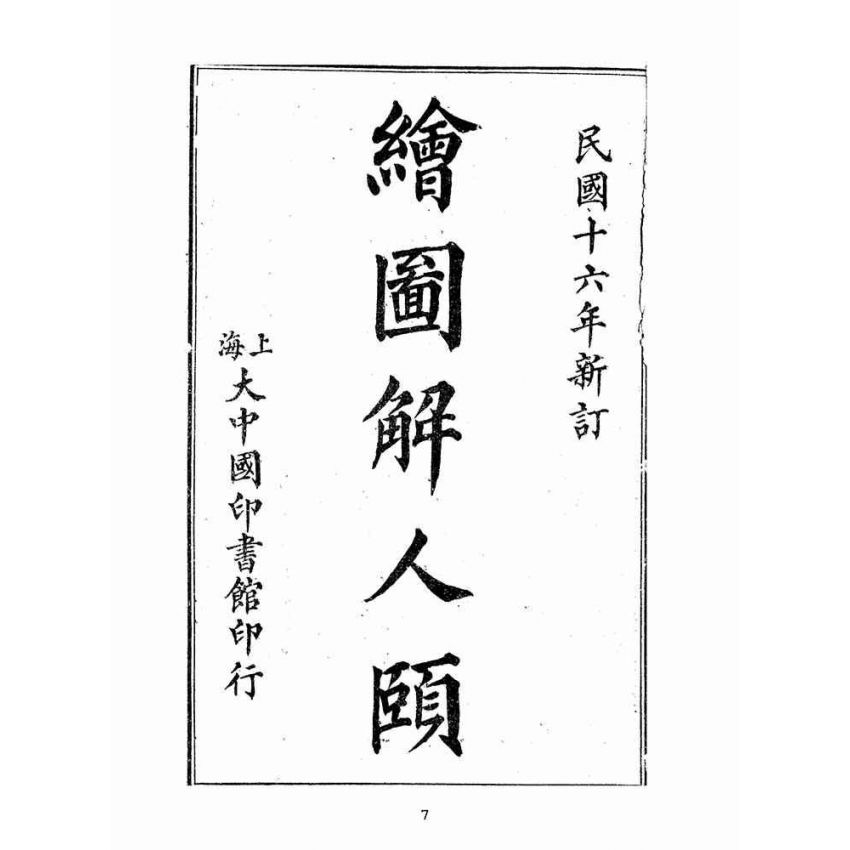 民國十六年新訂
繪圖解人頤
上海
大中國印書館印行
7